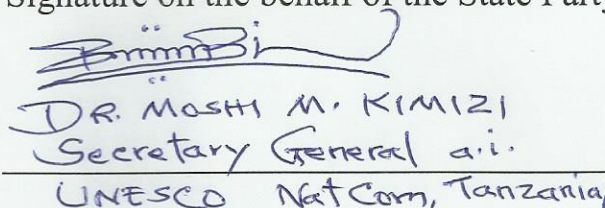 Signature on the behalf of the State Party
DR. MOSHI M. KIMIZI
Secretary General a.i.
UNESCO NatCom, Tanzania,